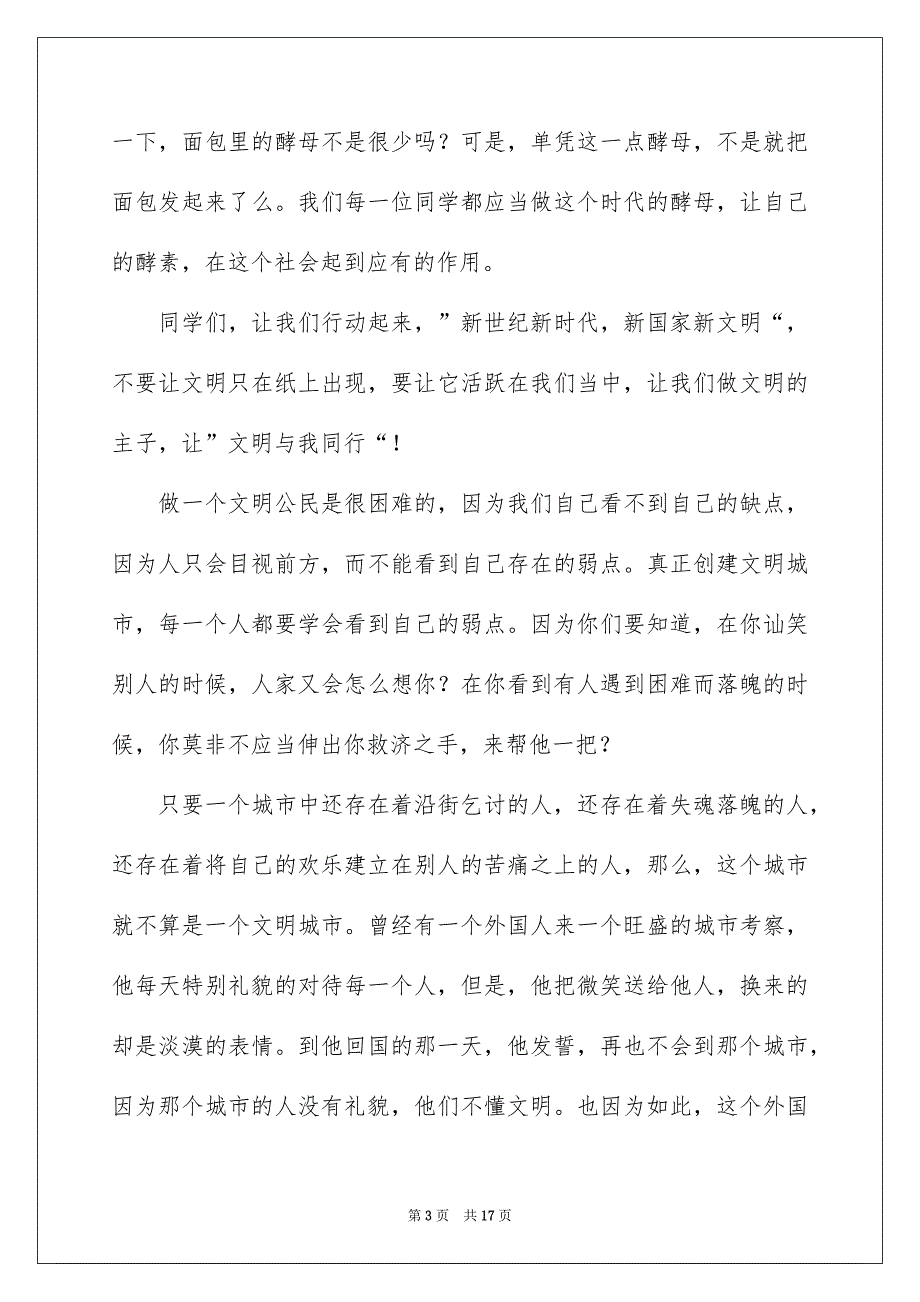 一下，面包里的酵母不是很少吗？可是，单凭这一点酵母，不是就把
面包发起来了么。我们每一位同学都应当做这个时代的酵母，让自己
的酵素，在这个社会起到应有的作用。
同学们，让我们行动起来，”新世纪新时代，新国家新文明“，
不要让文明只在纸上出现，要让它活跃在我们当中，让我们做文明的
主子，让”文明与我同行“！
做一个文明公民是很困难的，因为我们自己看不到自己的缺点，
因为人只会目视前方，而不能看到自己存在的弱点。真正创建文明城
市，每一个人都要学会看到自己的弱点。因为你们要知道，在你讪笑
别人的时候，人家又会怎么想你？在你看到有人遇到困难而落魄的时
候，你莫非不应当伸出你救济之手，来帮他一把？
只要一个城市中还存在着沿街乞讨的人，还存在着失魂落魄的人，
还存在着将自己的欢乐建立在别人的苦痛之上的人，那么，这个城市
就不算是一个文明城市。曾经有一个外国人来一个旺盛的城市考察，
他每天特别礼貌的对待每一个人，但是，他把微笑送给他人，换来的
却是淡漠的表情。到他回国的那一天，他发誓，再也不会到那个城市，
因为那个城市的人没有礼貌，他们不懂文明。也因为如此，这个外国
第 3 页 共 17 页